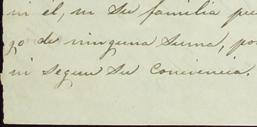 ni él, ni su familia pue
go de ninguna suma, po
ni segun su conciencia.